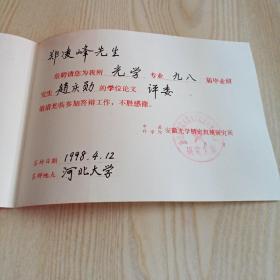 郑凌峰先生
兹聘请您为我所 光学 专业 九八 届毕业研
究生 赵庆勋 的学位论文 评委
敬请光临参加答辩工作，不胜感谢。
中国
科学院 安徽光学精密机械研究所
答辩日期 1998.4.12
答辩地点 河北大学